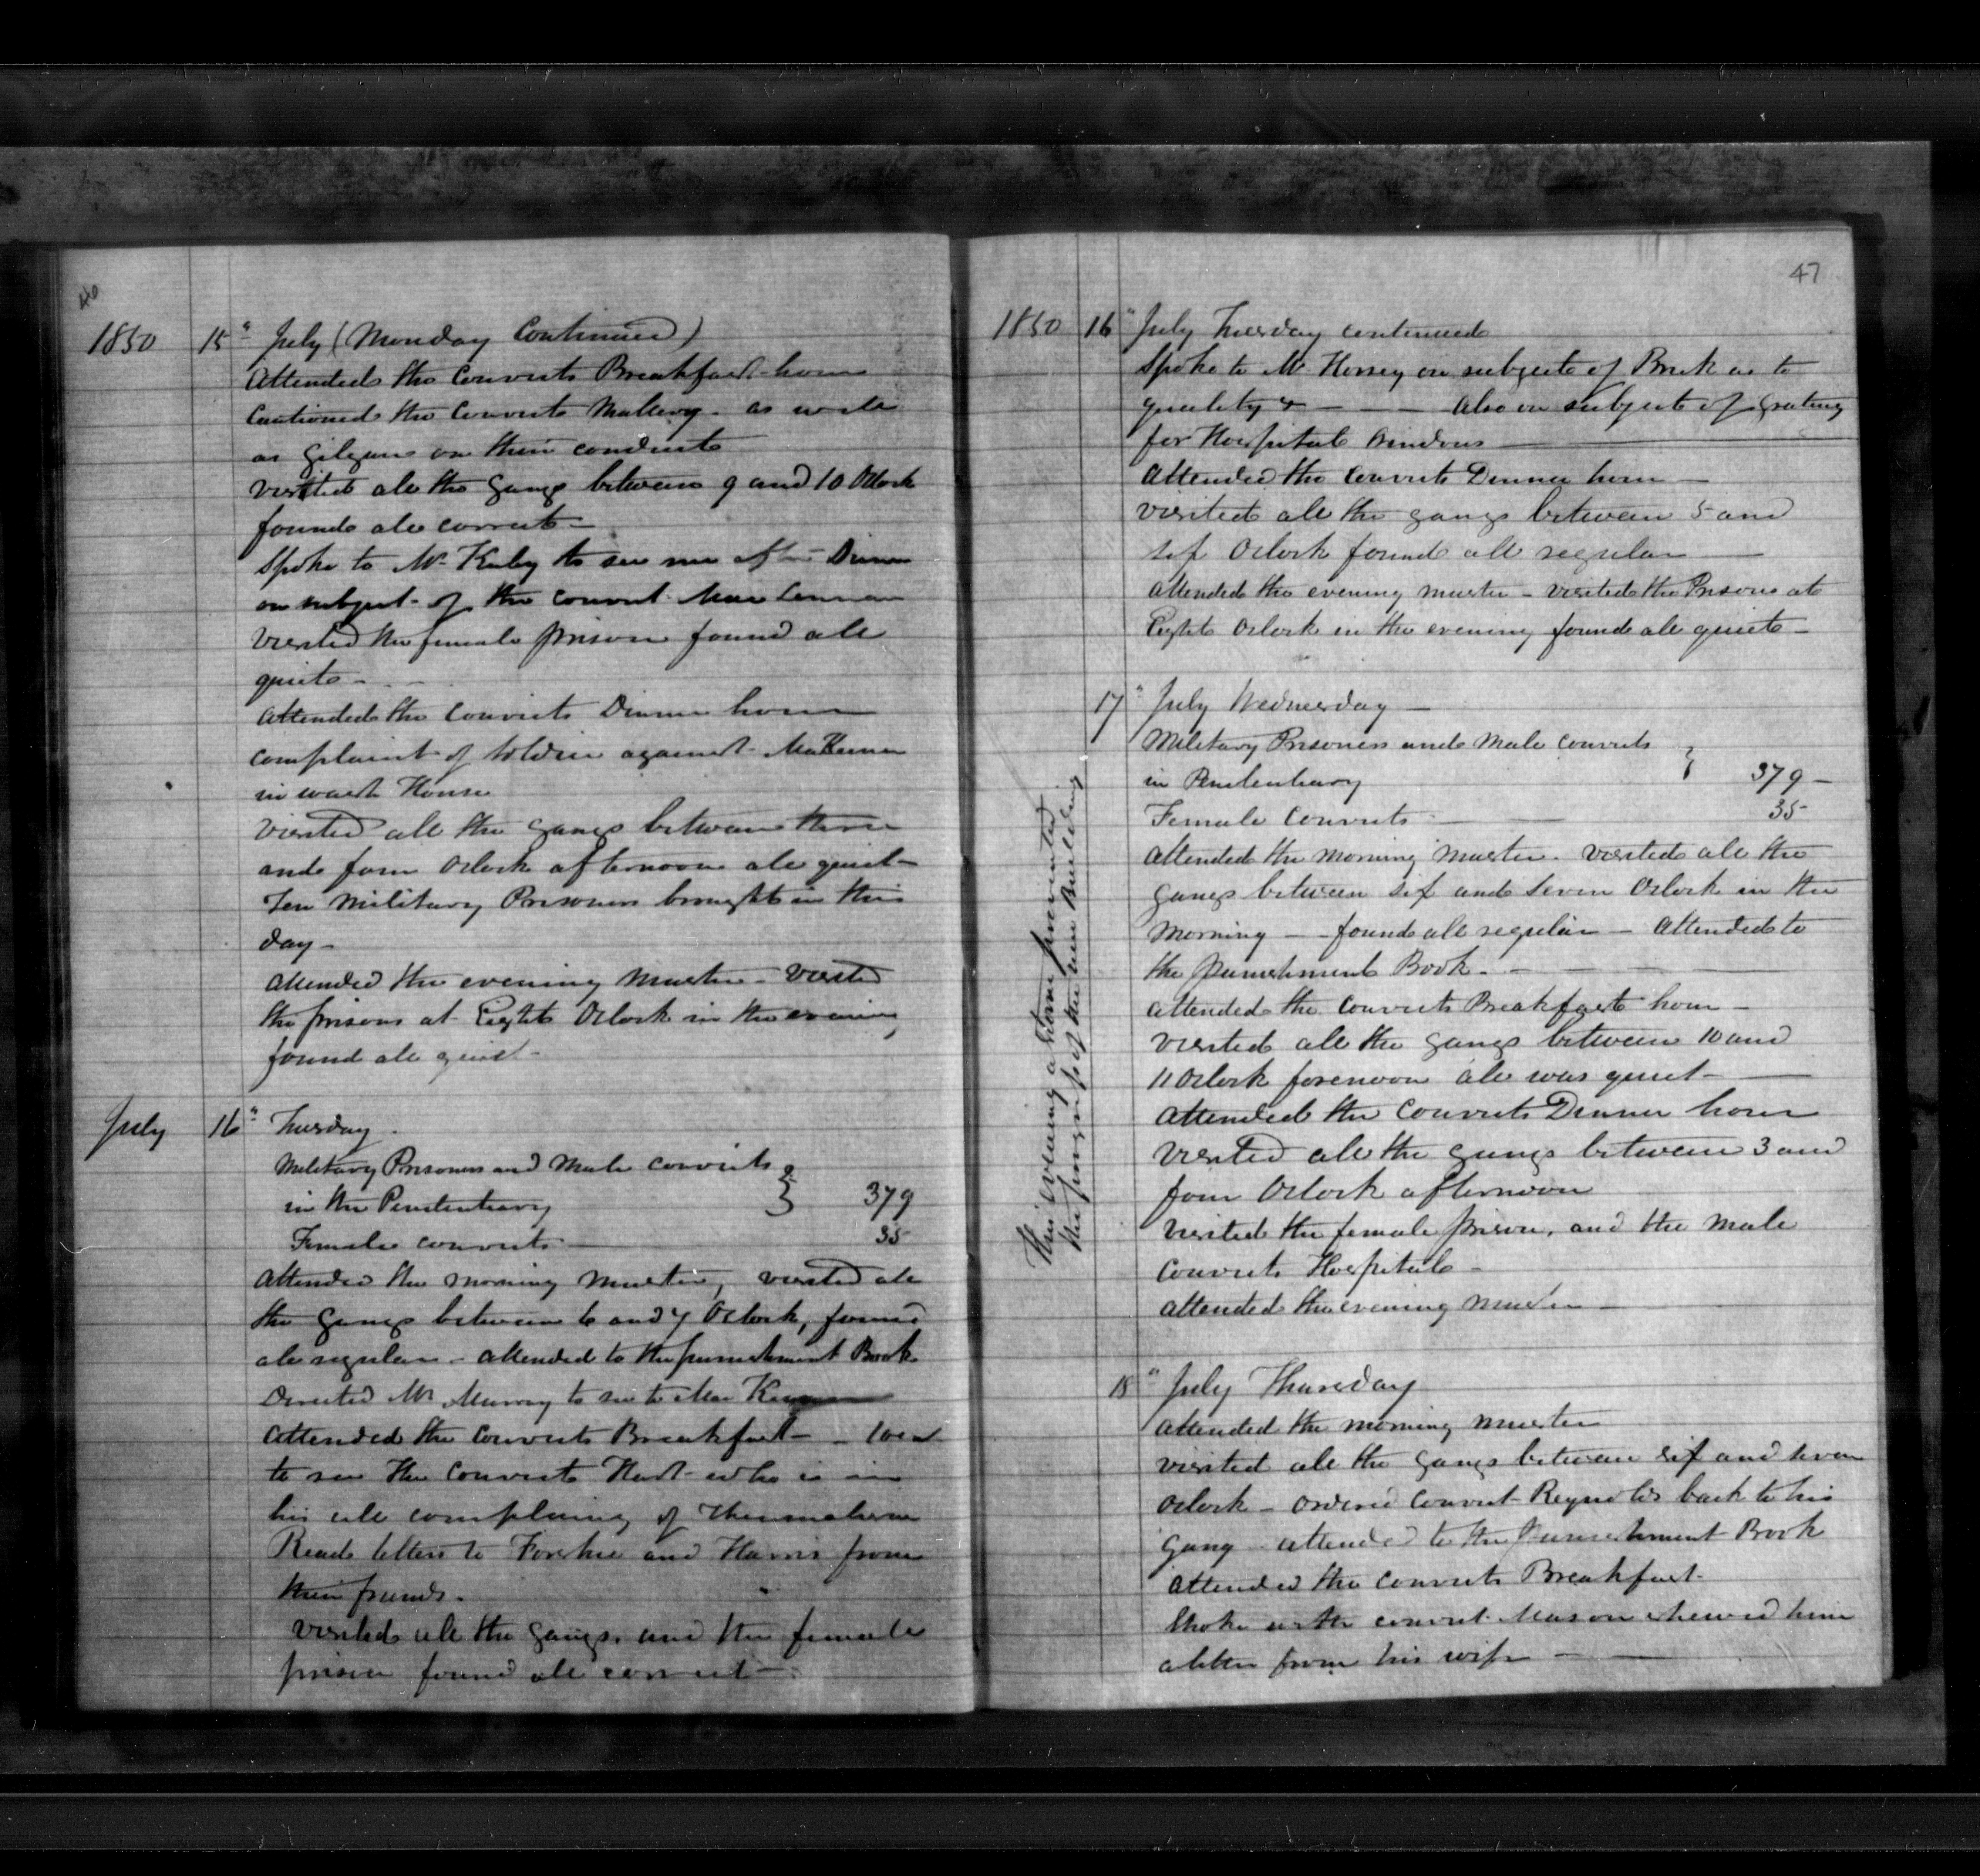 1850 15" July (Monday Continued)
Attended the Convicts Breakfast hour
Cautioned the Convicts Mallery as well
as Gilgan on their conduct
visited all the Gangs between 9 and 10 Oclock
found all correct –
Spoke to Mr Kirby to see me after Dinner
on subject of the convict
visited the female prison found all
quiet –
Attended the Convicts Dinner hour
complaint of Soldier against
in wash House
visited all the Gangs between three
and four Oclock afternoon all quiet –
Ten Military Prisoners brought in this
day –
attended the evening Muster – visited
the prisons at Eight Oclock in the evening
found all quiet –
July 16" Tuesday
Military Prisoners and Male convicts }
in the Penitentiary } 379
Female convicts 35
Attended the morning Muster, visited all
the Gangs between 6 and 7 Oclock, found
all regular – attended to the punishment Book
Directed Mr Murray to see to
Attended the Convicts Breakfast – – went
to see the Convict Hart who is in
his cell complaining of Rheumatism
Read letters to and Harris from
their friends.
visited all the Gangs, and the female
prison found all correct –
47
1850 16" July Tuesday continued
Spoke to Mr Horsey on subject of Brick as to
quality & – – – Also on subject of Grating
for Hospital Windows –
Attended the Convicts Dinner hour –
visited all the gangs between 5 and
six Oclock found all regular –
attended the evening muster – visited the Prisons at
Eight Oclock in the evening found all quiet –
17" July Wednesday –
Military Prisoners and Male Convicts }
in Penitentiary 379 –
Female Convicts – 35
Attended the Morning Muster. visited all the
gangs between six and seven Oclock in the
Morning – – found all regular – Attended to
the punishment Book – – – –
attended the Convicts Breakfast hour –
visited all the Gangs between 10 and
11 Oclock forenoon all was quiet –
Attended the Convicts Dinner hour
visited all the gangs between 3 and
four Oclock afternoon
visited the female prison, and the Male
Convicts Hospital –
attended the evening Muster –
This evening a storm prevented
the progress of the new Building
18" July Thursday
attended the morning muster
visited all the Gangs between six and seven
Oclock – ordered Convict Reynolds back to his
gang attended to the Punishment Book
attended the Convicts Breakfast.
Spoke with convict Mason shewed him
a letter from his wife – –